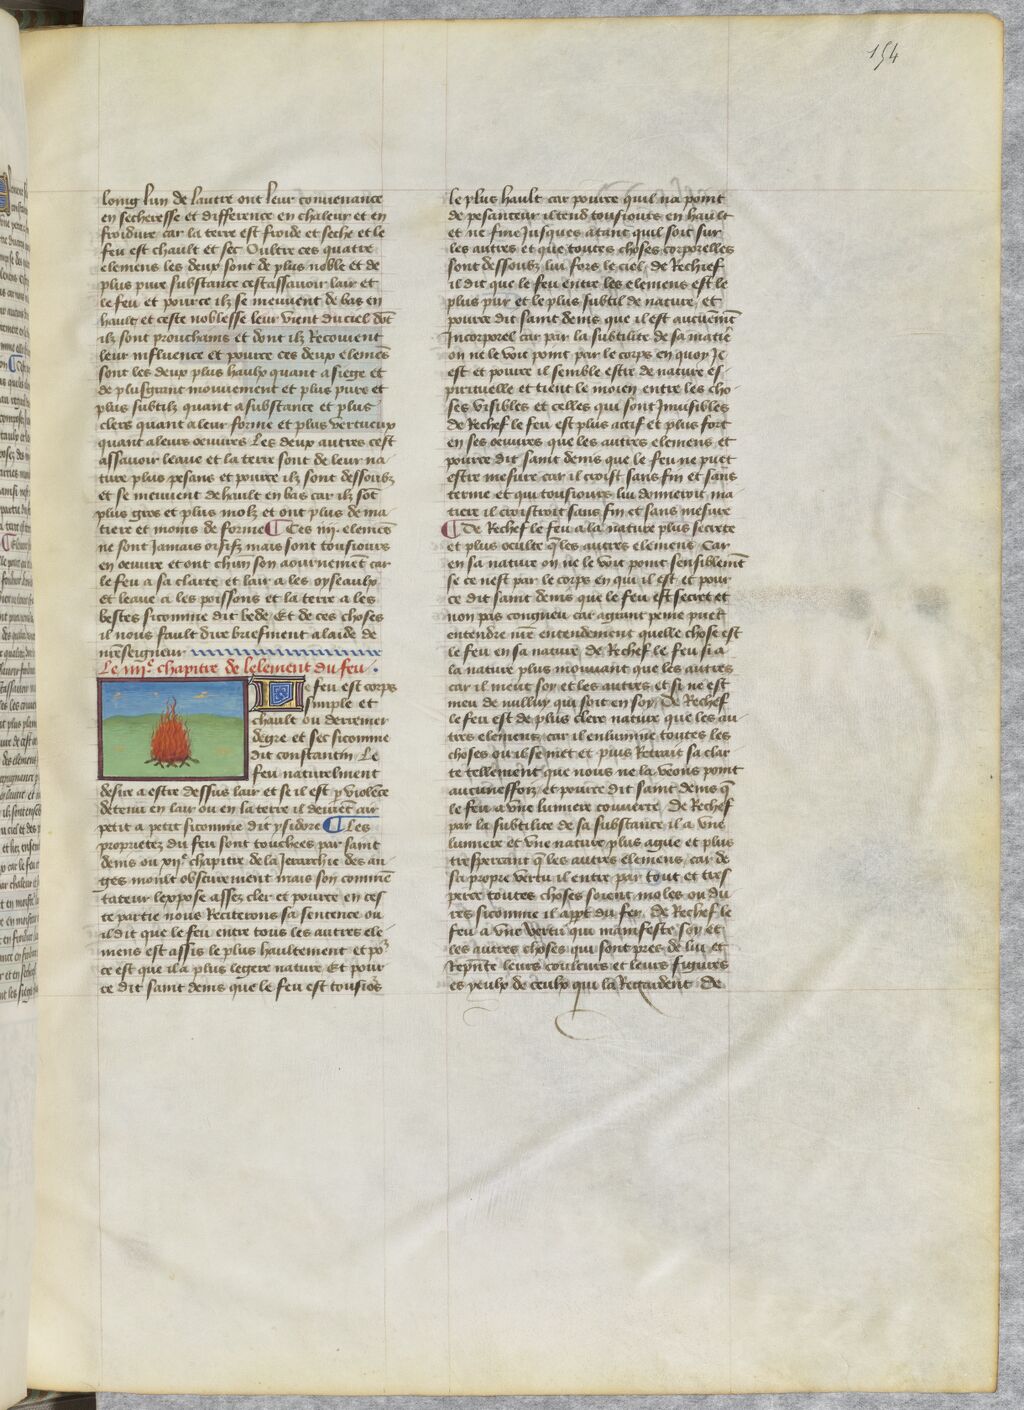 154
loing lun de lautre ont leur convenance
en secheresse et difference en chaleur et en
froidure car la terre est froide et seche et le
feu est chault et sec Oultre ces quatre
elemens les deux sont de plus noble et de
plus pure substance cestassavoir lair et
le feu et pource ilz se meuvent de bas en
hault et ceste noblesse leur vient du ciel dōt
ilz sont prouchains et dont ilz Recoivent
leur influence et pource ces deux elemēs
sont les deux plus haulx quant a siege et
de plusgrant mouvement et plus pure et
plus subtilz quant a substance et plus
clers quant a leur forme et plus vertueux
quant a leurs oeuvres Les deux autres cest
assavoir leaue et la terre sont de leur na-
ture plus pesans et pource ilz sont dessoubz
et se meuvent de hault en bas car ilz sōt
plus gros et plus molz et ont plus de ma-
tiere et moins de forme ¶ Ces iiii. elemēs
ne sont Jamais oisifz mais sont tousiours
en oeuvre et ont chūn son aournemēt car
le feu a sa clarte et lair a les oyseaulx
Et leaue a les poissons et la terre a les
bestes sicomme dit bede Et de ces choses
il nous fault dire briefment a laide de
nr̄eseigneur
Le iiiiᵉ. chapitre de lelement du feu.
Le feu est corps
simple et
chault ou derrenier
degre et sec sicomme
dit constantin Le
feu naturelment
desire a estre dessus lair et se il est p violēce
detenu en lair ou en la terre il devient air
petit a petit sicomme dit ysidore ¶ Les
proprietez du feu sont touchees par saint
denis ou xiiᵉ. chapitre de la Jerarchie des an-
ges moult obscurement mais son commē
tateur lexpose assez cler et pource en ces
te partie nous Reciterons sa sentence ou
il dit que le feu entre tous les autres ele-
mens est assis le plus haultement et poʳ
ce est que il a plus legere nature Et pour
ce dit saint denis que le feu est tousiōs
le plus hault car pource quil na point
de pesanteur il tend tousiours en hault
et ne fine Jusques atant quil soit sur
les autres et que toutes choses corporelles
sont dessoubz lui fors le ciel, de Rechief
il dit que le feu entre les elemens est le
plus pur et le plus subtil de nature, et
pource dit saint denis que il est aucunemēt
Incorporel car par la subtilite de sa matiē
on ne le voit point par le corps en quoy Je
est et pource il semble estre de nature es-
pirituelle et tient le moien entre les cho-
ses visibles et celles qui sont Invisibles
de Rechef le feu est plus actif et plus fort
en ses oeuvres que les autres elemens, et
pource dit saint denis que le feu ne puet
estre mesure car il croist sans fin et sans
terme et qui tousiours lui donneroit ma
tiere il croistroit sans fin et sans mesure
¶ De Rechef le feu a la nature plus secrete
et plus oculte q̄ les autres elemens Car
en sa nature on ne le voit point sensiblemēt
se ce nest par le corps en qui il est et pour
ce dit saint denis que le feu est secret et
non pas congneu car agrant peine puet
entendre nr̄e entendement quelle chose est
le feu en sa nature, de Rechef le feu si a
la nature plus mouvant que les autres
car il meut soy et les autres et si ne est
meu de nulluy qui soit en soy, De Rechef
le feu est de plus clere nature que les au-
tres elemens, car il enlumine toutes les
choses ou il se met et puis Retrait sa clar
te tellement que nous ne la veons point
aucuneffoiz et pource dit saint denis q̄
le feu a vne lumiere couverte, de Rechef
par la subtilite de sa substance il a vne
lumiere et vne nature plus ague et plus
trespercant q̄ les autres elemens, car de
sa propre vertu il entre par tout et tres
perce toutes choses soient moles ou du
res sicomme il appt du fer, de Rechef le
feu a vne vertu qui manifeste soy et
les autres choses qui sont pres de lui et
Rep̄nte leurs couleurs et leurs figures
es yeulx de ceulx qui la Regardent De